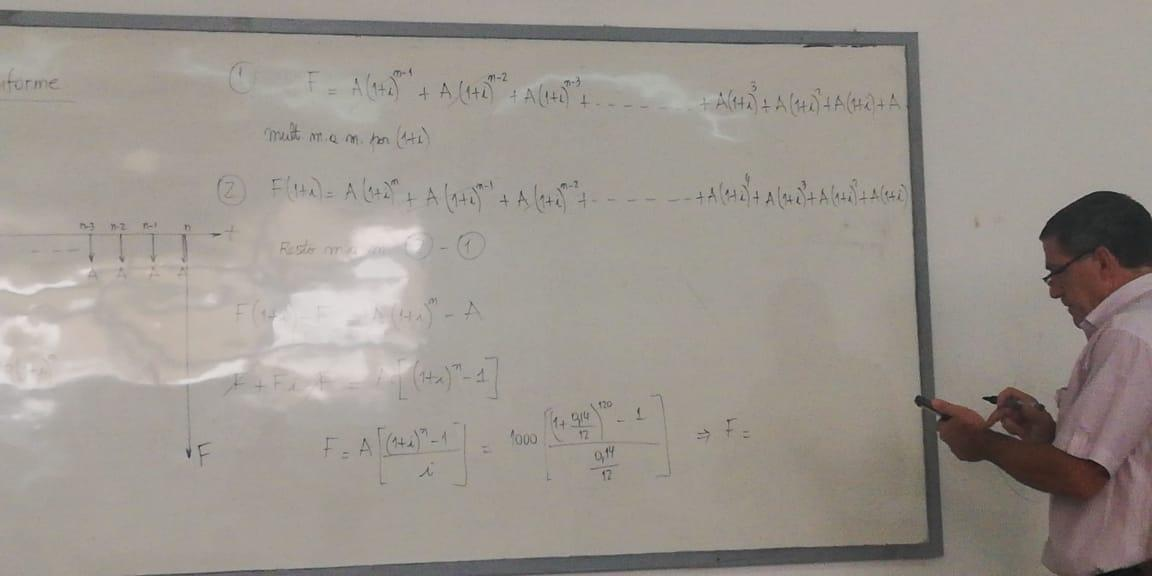 iforme
① F = A(1+i)^{n-1} + A(1+i)^{n-2} + A(1+i)^{n-3} + - - - - - - - + A(1+i)^3 + A(1+i)^2 + A(1+i) + A
mult m. a m. por (1+i)
② F(1+i) = A(1+i)^n + A(1+i)^{n-1} + A(1+i)^{n-2} + - - - - - - - + A(1+i)^4 + A(1+i)^3 + A(1+i)^2 + A(1+i)
n-3 n-2 n-1 n t
A A A A
Resto m a m ② - ①
F(1+i) - F = A(1+i)^n - A
F + Fi - F = A[(1+i)^n - 1]
F
F = A[((1+i)^n - 1)/i] = 1000[((1 + 0,14/12)^{120} - 1)/(0,14/12)] ⇒ F =